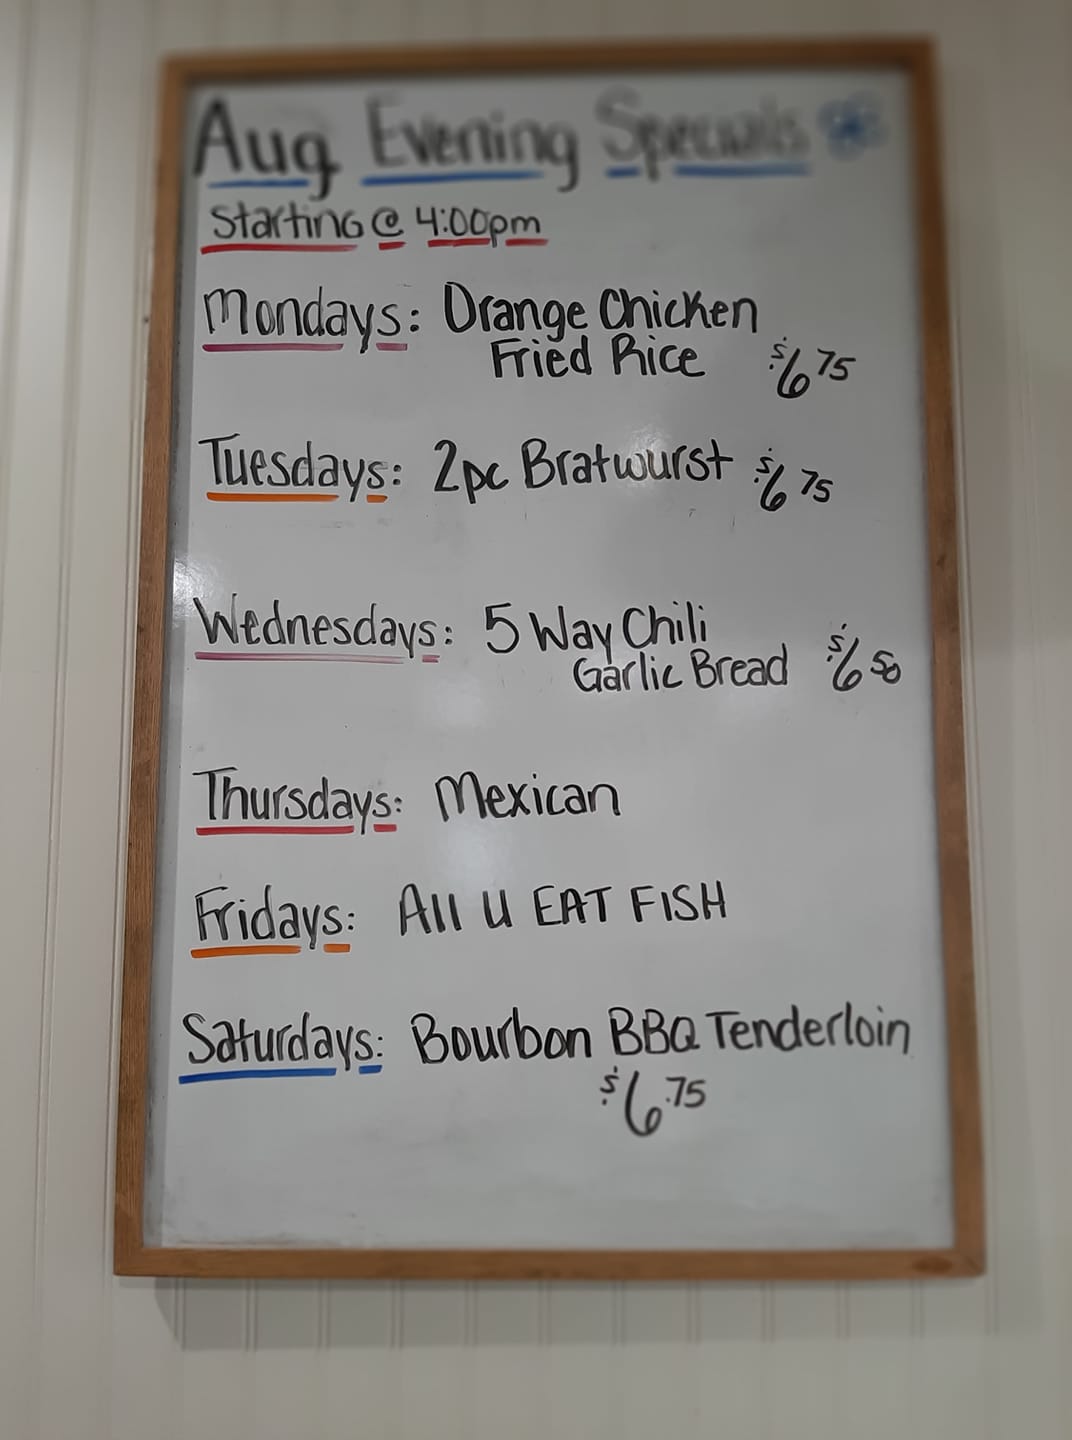 Aug Evening Specials
Starting @ 4:00pm
Mondays: Orange Chicken
Fried Rice $6 75
Tuesdays: 2pc Bratwurst $6 75
Wednesdays: 5 Way Chili
Garlic Bread $6 50
Thursdays: Mexican
Fridays: All U EAT FISH
Saturdays: Bourbon BBQ Tenderloin
$6.75